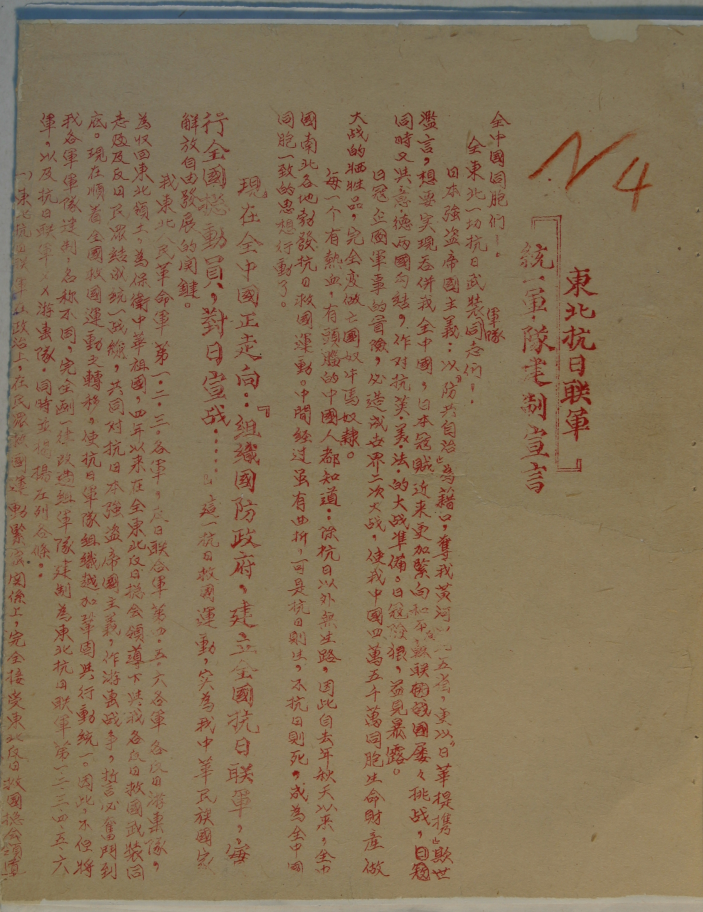 N 4
『東北抗日联軍
統一軍隊建制宣言』
全中國同胞們！。
全東北一切抗日武裝軍隊同志们！.
日本強盜帝國主義：以"防共自治"為藉口，奪我黄河以北五省，更以"日華提携"欺世
濫言，想要实現吞併我全中國，日本冠賊近來更加緊向和平蘇联国战國屡々挑战，日冠
同時又與意德两國勾結，作对抗英·美·法·的大战準備、日冠猖狠，益見暴露。
日冠在國軍事的冒險，必造成世界二次大战，使我中國四萬五千萬同胞生命財產做
大战的牺牲品，完全变做亡國奴牛馬奴隶。
每一个有热血，有頭腦的中國人都知道：除抗日以外無生路，因此自去年秋天以來，全中
國南北各地勃發抗日救國運動。中間经过虽有曲折，可是抗日則生，不抗日則死，成為全中國
同胞一致的思想行動了。
現在全中國正走向：『組織國防政府，建立全國抗日联軍，实
行全國總動員，對日宣战……』這一抗日救國運動，实為我中華民族國家
解放自由發展的関鍵。
我東北人民革命軍第一·二·三·各軍，反日联合軍第四·五·六各軍各反日游擊隊，
為收回東北領土，為保衛中華祖國，四年以來在全東北反日總会領導下與我各反日救國武裝同
志及反日民眾結成統一战線，共同对抗日本強盜帝國主義，作游擊战争，誓言必奮鬥到
底。現在順着全國救國運動之轉移，使抗日軍隊組織越加鞏固與行動統一。因此不但將
我各軍軍隊建制，名称不同，完全劃一建改番組軍隊建制為東北抗日联軍第一·二·三·四·五·六
軍，以及抗日联軍××游擊隊。同時並揭揚左列各條：
一、東北抗日联軍在政治上，在民眾救國運動繫属関係上，完全接受東北反日救國總会領導